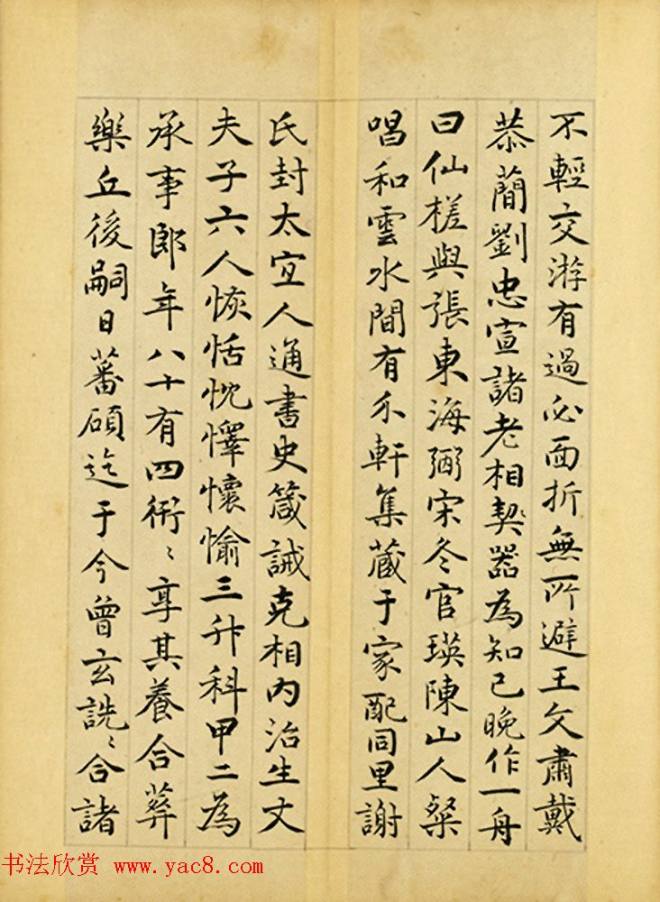 不輕交游有過必面折無所避王文肅戴
恭蕳劉忠宣諸老相契器為知己晚作一舟
曰仙槎與張東海弼宋冬官瑛陳山人粲
唱和雲水間有禾軒集蔵于家配同里謝
氏封太宜人通書史箴誡克相内治生丈
夫子六人恢恬忱懌懷愉三升科甲二為
承事郎年八十有四衎〻享其養合葬
樂丘後嗣日蕃碩迄于今曾玄詵〻合諸
书法欣赏 www.yac8.com